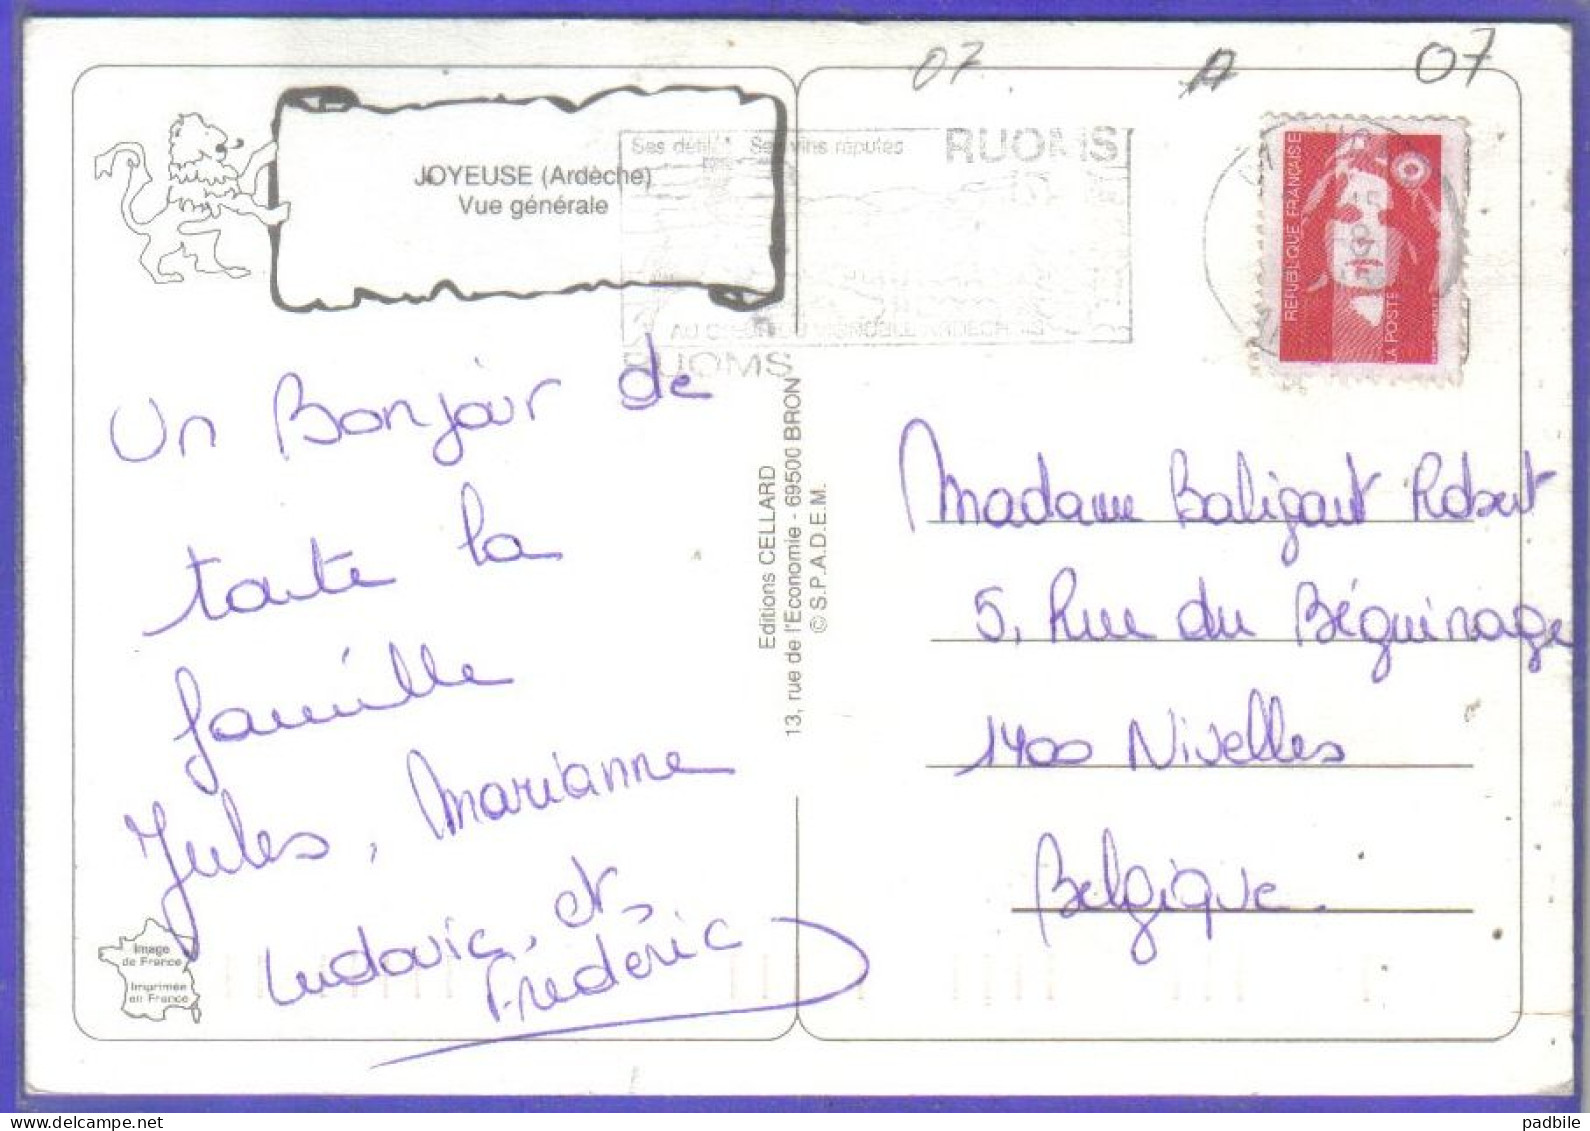 07 A 07
JOYEUSE (Ardèche)
Vue générale
Ses vins réputés
RUOMS
RUOMS
REPUBLIQUE FRANÇAISE
LA POSTE
Un Bonjour de
toute la
famille
Jules, Marianne
Ludovic, et
Frédéric
Editions CELLARD
13, rue de l'Economie - 69500 BRON
© S.P.A.D.E.M.
Madame Baligant Robert
5, Rue du Béguinage
1400 Nivelles
Belgique.
Image
de France
Imprimée
en France
padbile